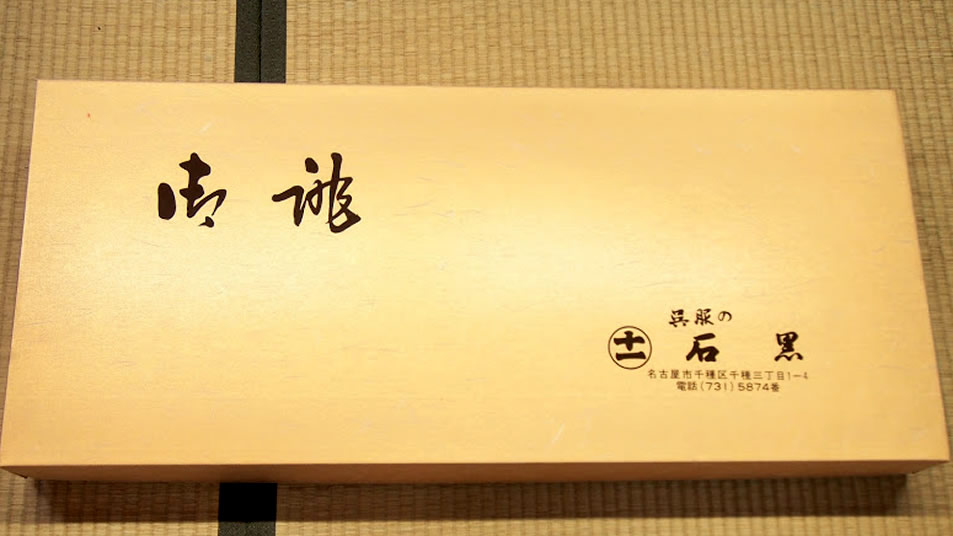 御誂
呉服の
十一 石黒
名古屋市千種区千種三丁目1-4
電話(731)5874番